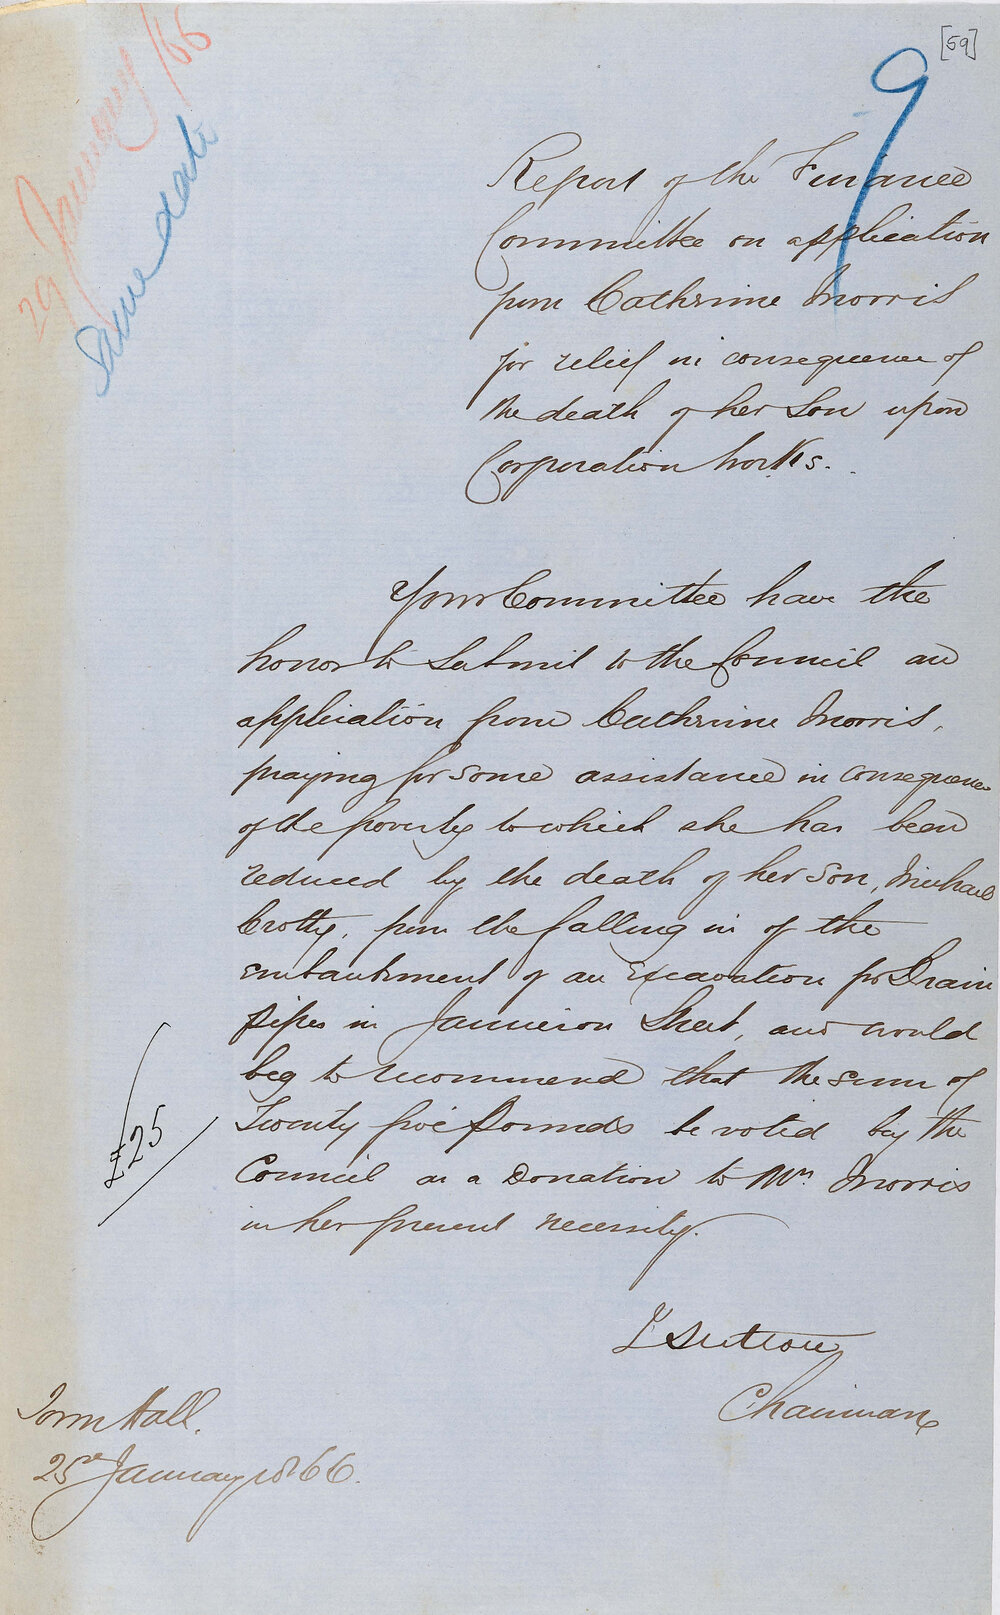 [59]
9
29 January /66
Same date
Report of the Finance
Committee on application
from Catherine Morris
for relief in consequence of
the death of her Son upon
Corporation Works.
Your Committee have the
honor to Submit to the Council an
application from Catherine Morris,
praying for some assistance in consequence
of the poverty to which she has been
reduced by the death of her son, Michael
Crotty, from the falling in of the
embankment of an Excavation for Drain
pipes in Jamieson Street, and would
beg to recommend that the sum of
Twenty five pounds be voted by the
£25
Council as a Donation to Mrs Morris
in her present necessity.
Sutton
Chairman
Town Hall.
25th January 1866.